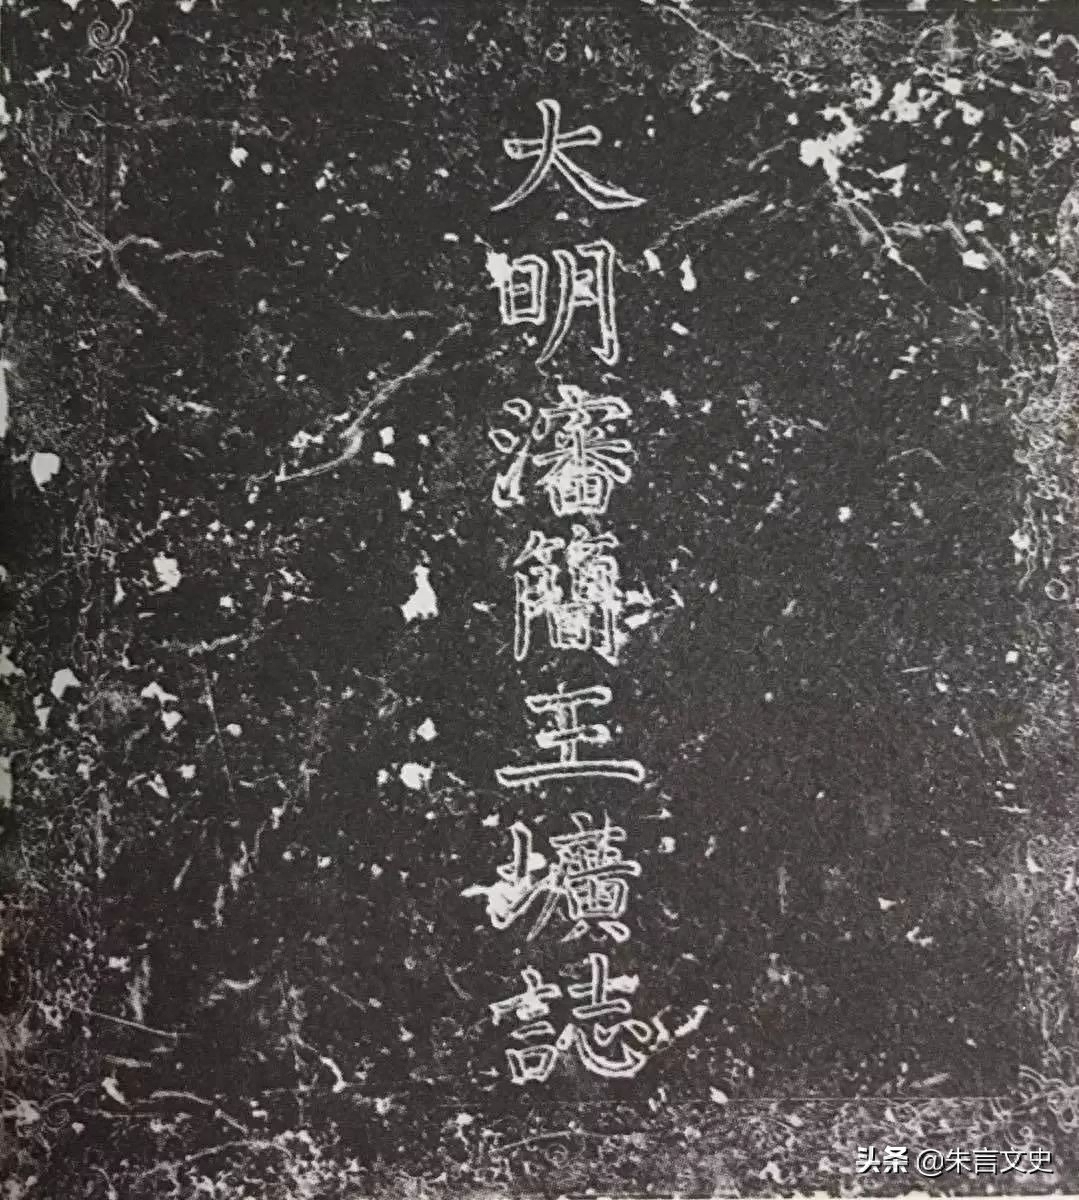 大明瀋簡王壙誌
头条 @朱言文史